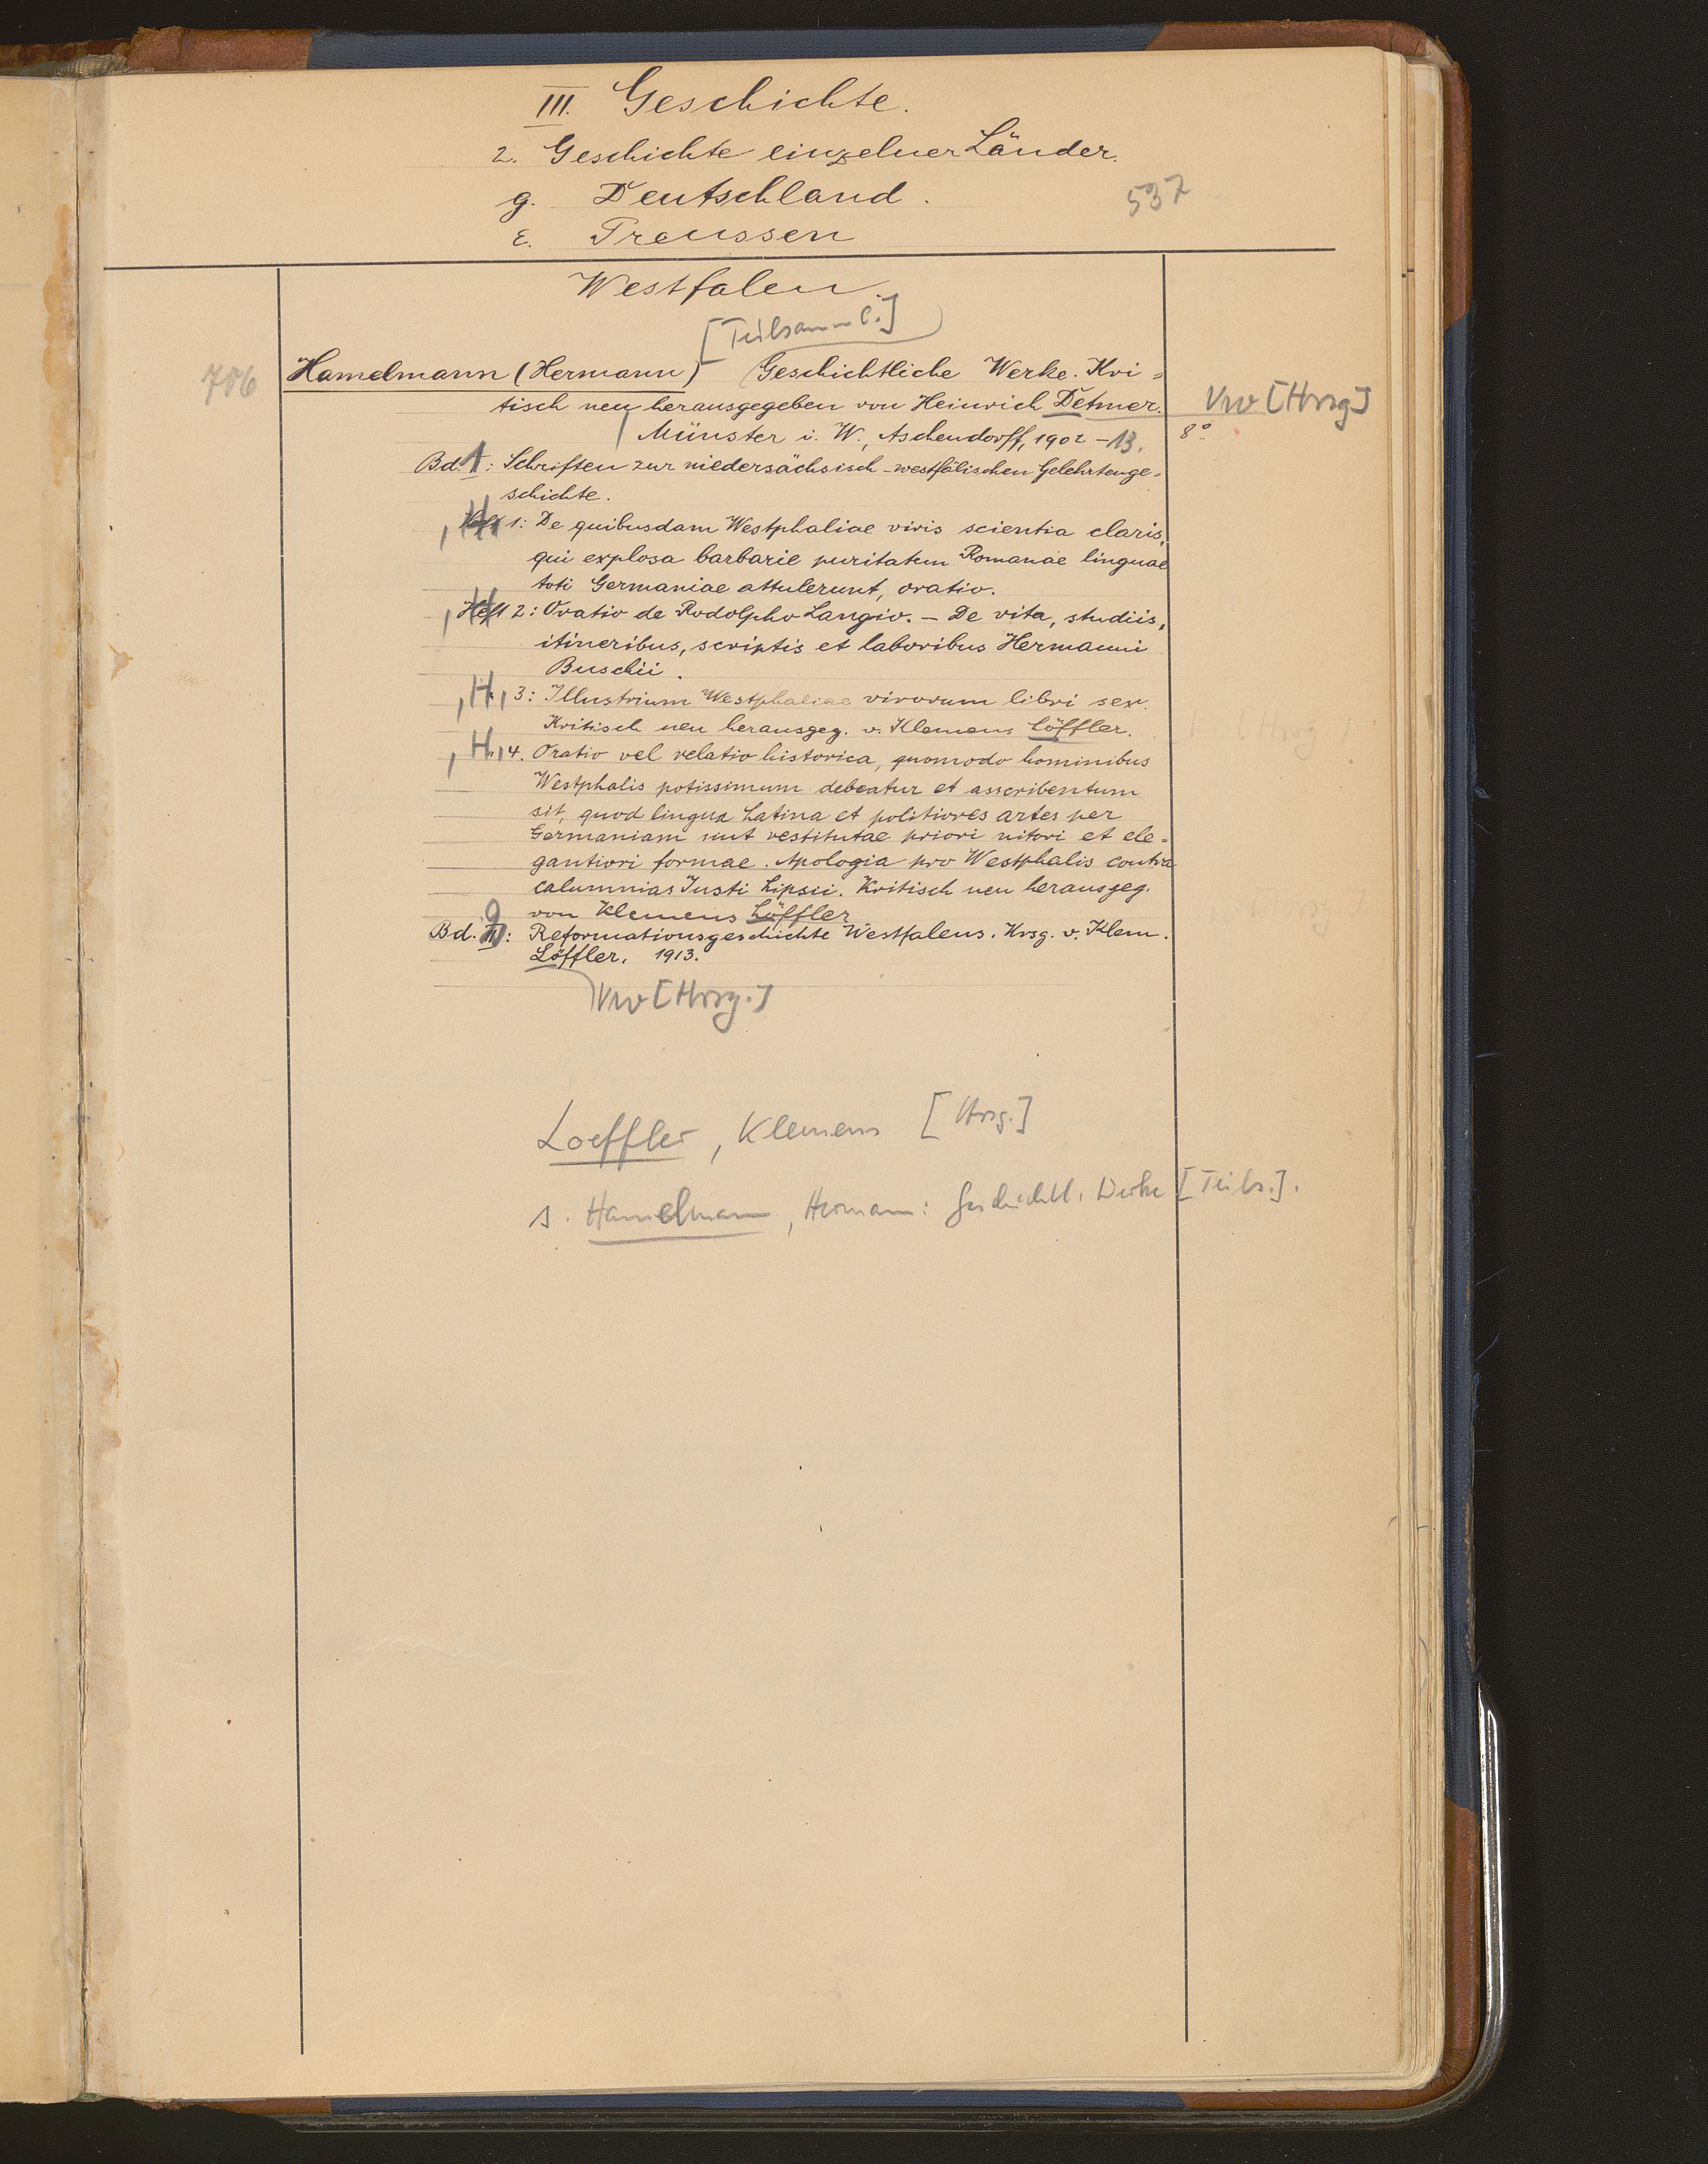 III. Geschichte.
2. Geschichte einzelner Länder.
g. Deutschland.
537
ε. Preussen
Westfalen.
[Teilsamml.]
706
Hamelmann (Hermann) Geschichtliche Werke. Kri=
tisch neu herausgegeben von Heinrich Detmer.
Vw [Hrsg]
Münster i. W., Aschendorff, 1902-13.
8°
Bd. 1: Schriften zur niedersächsisch-westfälischen Gelehrtenge=
schichte.
, H. 1: De quibusdam Westphaliae viris scientia claris,
qui explosa barbarie puritatem Romanae linguae
toti Germaniae attulerunt, oratio.
, Heft 2: Oratio de Rodolpho Langio. - De vita, studiis,
itineribus, scriptis et laboribus Hermanni
Buschii.
, H. 3: Illustrium Westphaliae virorum libri sex.
Kritisch neu herausgeg. v. Klemens Löffler.
, H. 4. Oratio vel relatio historica, quomodo hominibus
Westphalis potissimum debeatur et asscribentum
sit, quod lingua Latina et politiores artes per
Germaniam sint restitutae priori nitori et ele=
gantiori formae. Apologia pro Westphalis contra
calumnias Justi Lipsii. Kritisch neu herausgeg.
von Klemens Löffler
Bd. 2: Reformationsgeschichte Westfalens. Hrsg. v. Klem.
Löffler. 1913.
Vw [Hrsg.]
Loeffler, Klemens [Hrsg.]
s. Hamelmann, Hermann: Geschichtl. Werke [Teils.].